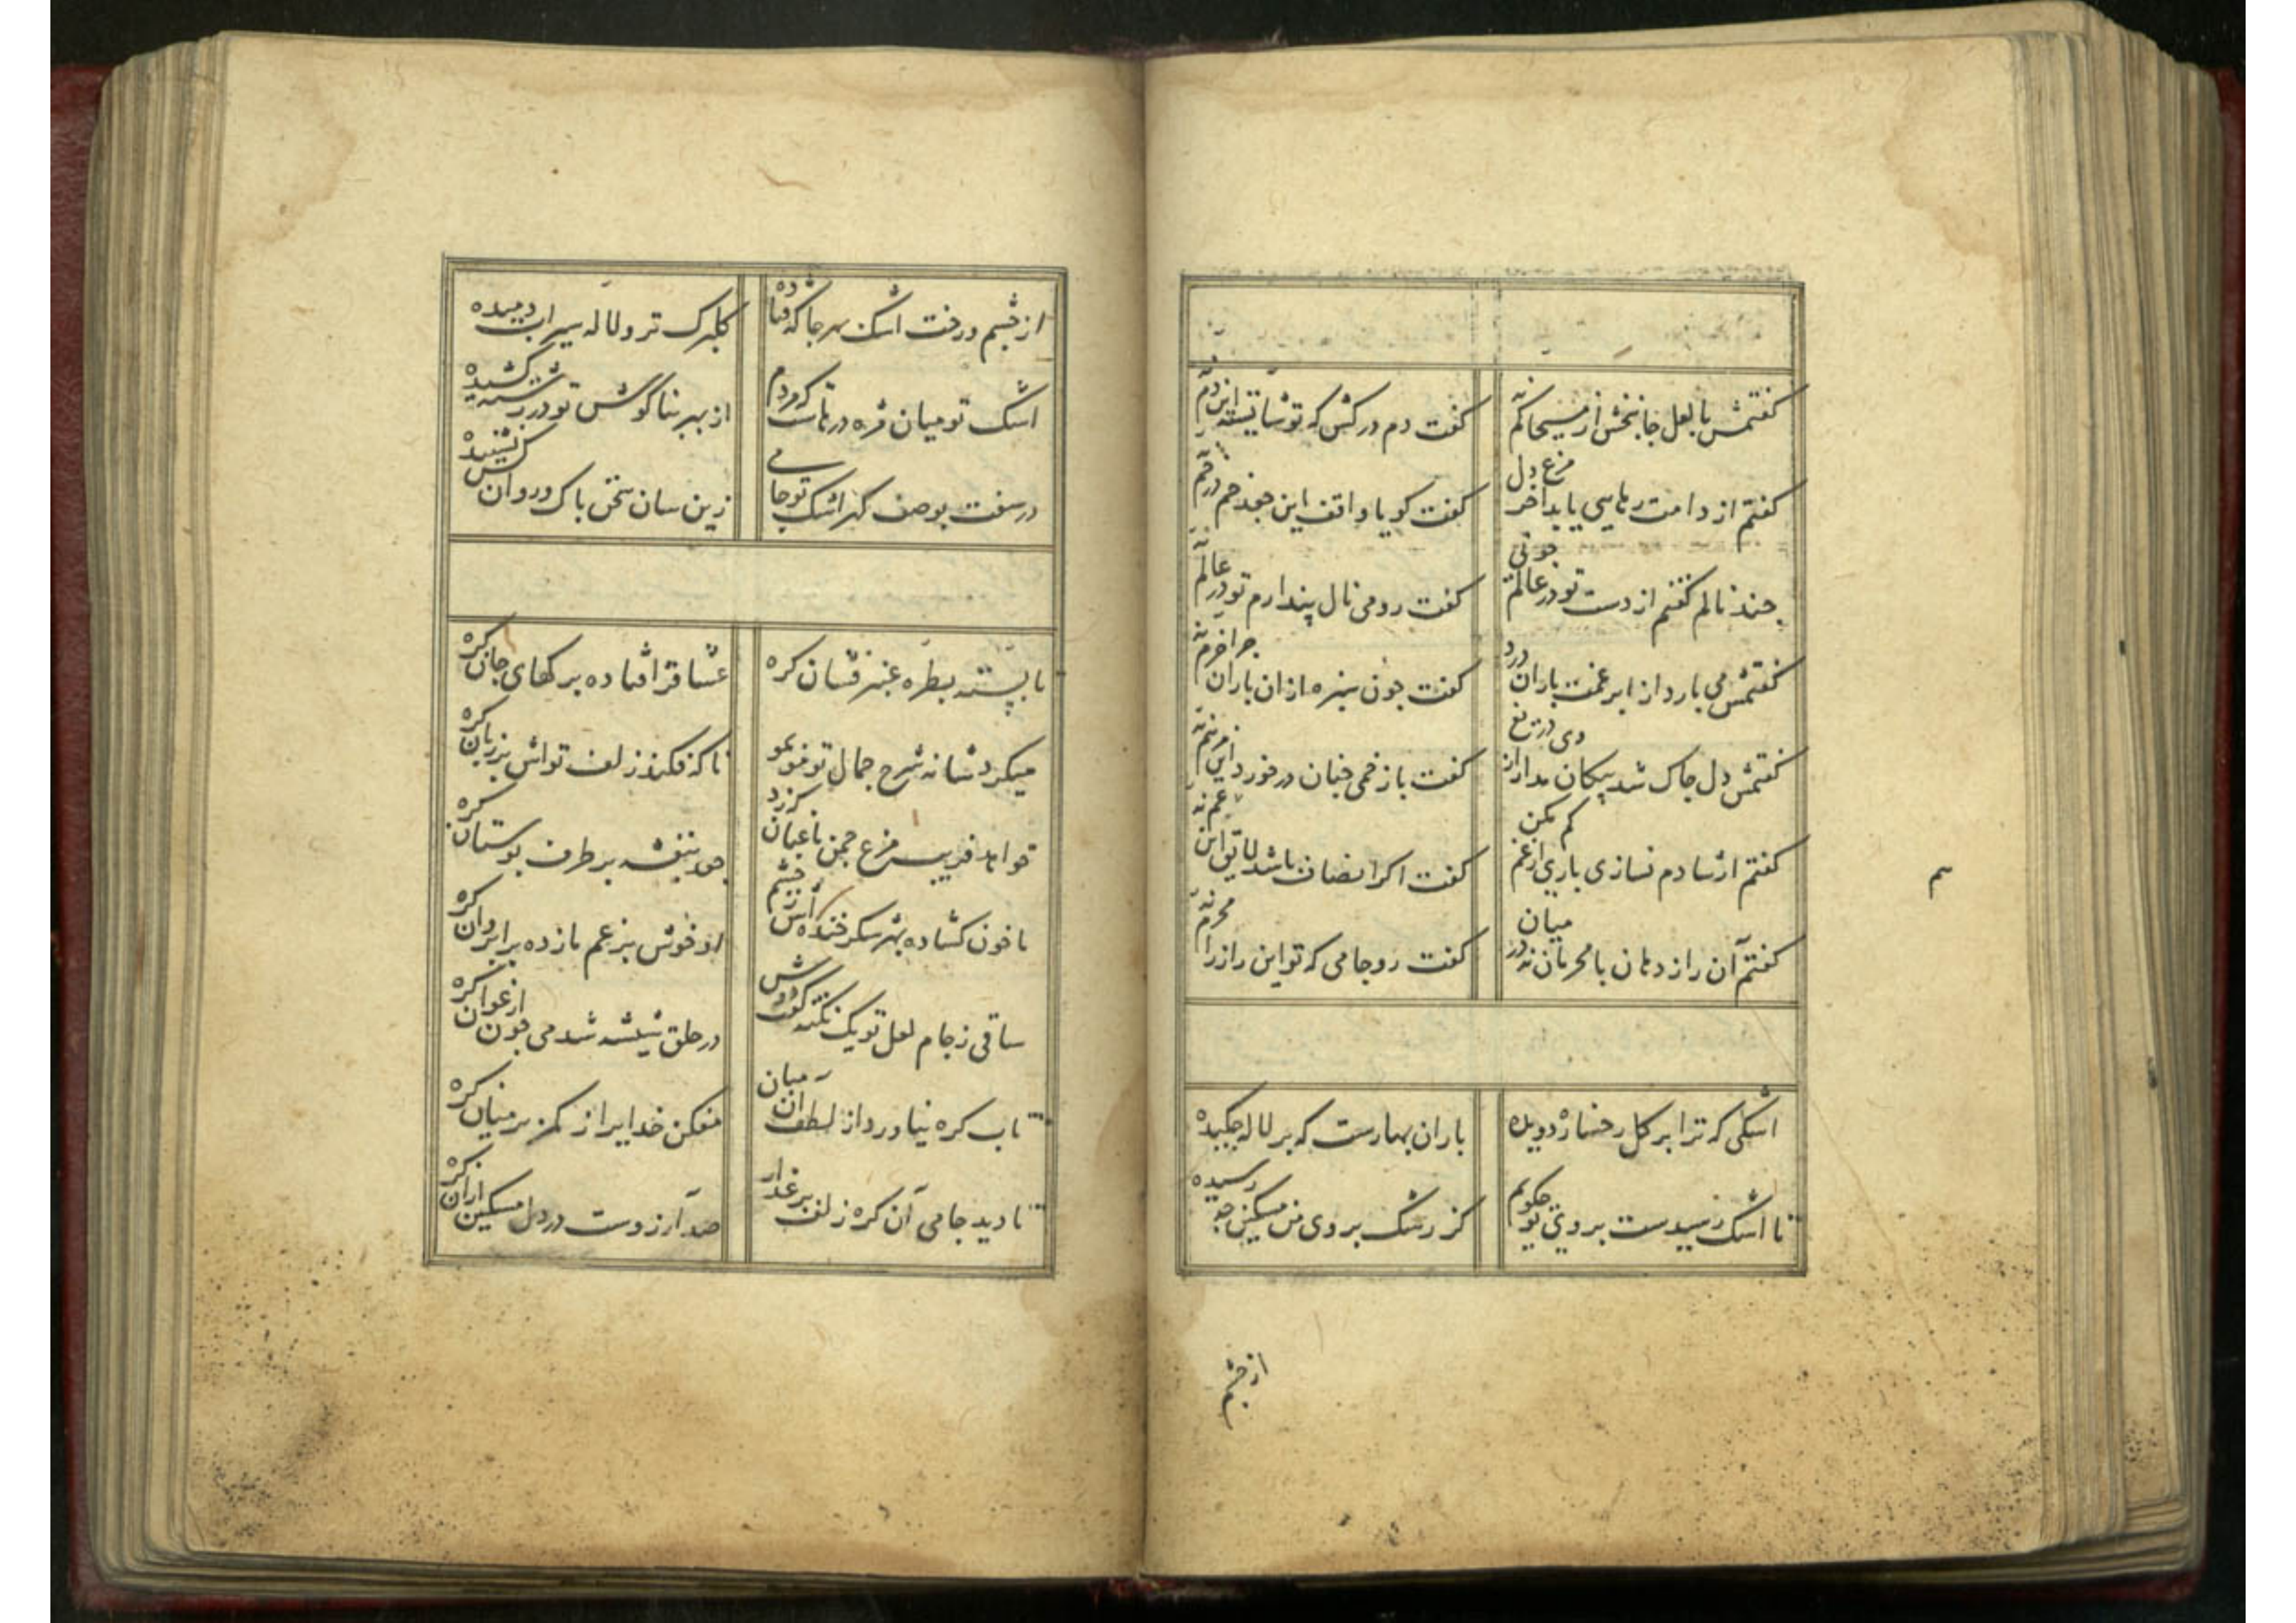 کفتمش با لعل جانبخش از مسیحا کم نهٔ
کفت دم درکش که تو شایستهٔ این دم نهٔ
کفتم از دامت رهایی یابد آخر مرغ دل
کفت کویا واقف این جعد خم در خم نهٔ
چند نالم کفتم از دست تو در عالم جونی
کفت رو می نال پندارم تو در عالم نهٔ
کفتمش می بارد از ابر غمت باران درد
کفت جون سبزه ازان باران جرا خرم نهٔ
کفتمش دل جاک شد پیکان مدار از وی دریغ
کفت با زخمی جنان در خورد این مرهم نهٔ
کفتم ار شادم نسازی باری از غم کم مکن
کفت اکر انصاف باشد لایق این غم نهٔ
کفتم آن راز دهان با محرمان نه در میان
کفت رو جامی که تو این راز را محرم نهٔ
اشکی که ترا بر کل رخساره دویده
باران بهارست که بر لاله جکیده
تا اشک رسیدست بروی تو جکویم
کز رشک بروی من مسکین جه رسیده
از جشم
از جشم و رخت اشک بهر جا که فتاده
کلبرک تر و لاله سیراب دمیده
اشک تو میان مژه درهاست که مردم
از بهر بناکوش تو در رشته کشیده
در سفت بوصف کهر اشک تو جامی
زین سان سخن باک و روان کس نشنیده
تا بسته بطره عنبر فشان کره
عشاق را فتاده برکهای جان کره
میکرد شانه شرح جمال تو مو بمو
ناکه فکند زلف تواش بر زبان کره
خواهد فریب مرغ جمن باغبان که زد
جعد بنفشه بر طرف بوستان کره
ما خون کشاده بهر شکر خنده اش ز جشم
او خوش بزعم ما زده بر ابروان کره
ساقی ز جام لعل تو یک نکته کفت دوش
در حلق شیشه شد می جون ارغوان کره
تاب کره نیاورد از لطف آن میان
مفکن خدایرا ز کمر بر میان کره
تا دید جامی آن کره زلف بر عذار
صد آرزوست در دل مسکین ازان کره